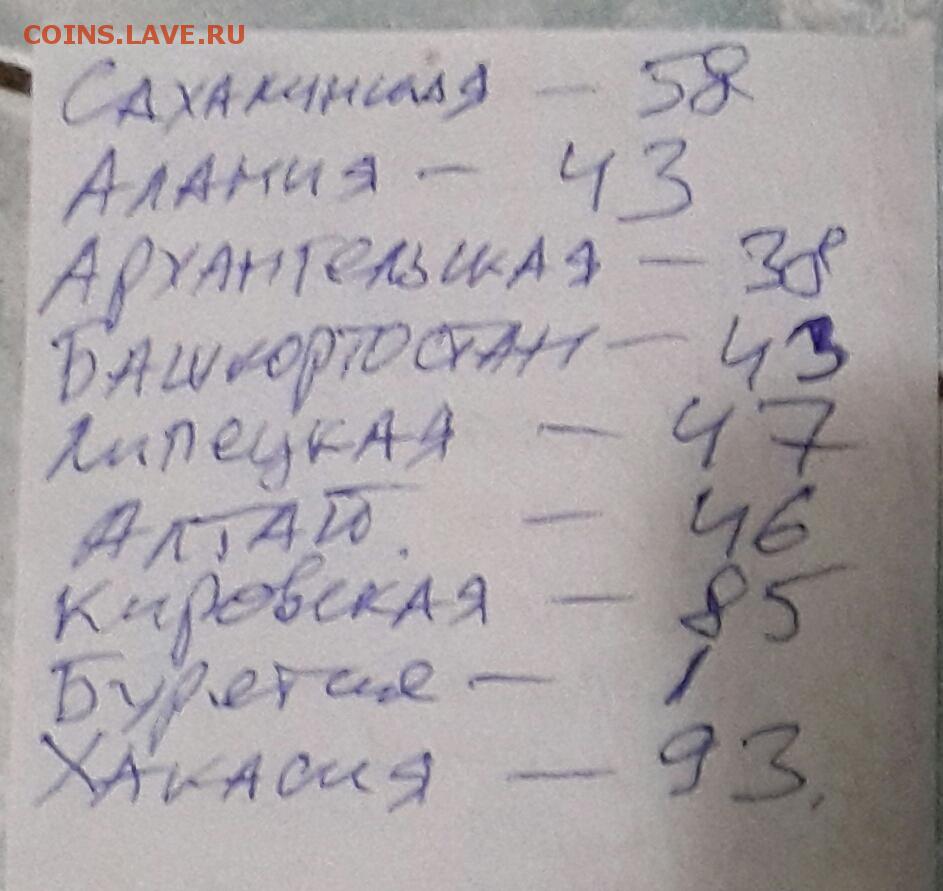 COINS.LAVE.RU
Сахалинская — 58
Алания — 43
Архангельская — 38
Башкортостан — 43
Липецкая — 47
Алтай. — 46
Кировская — 85
Буретие — 1
Хакасия — 93.